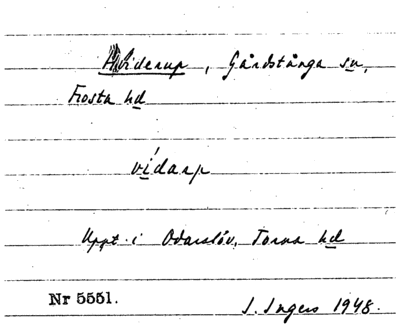 Hviderup, Gårdstånga sn,
Frosta hd
vídarp
Uppt. i Odarslöv, Torna hd
Nr 5551.
I. Ingers 1948.